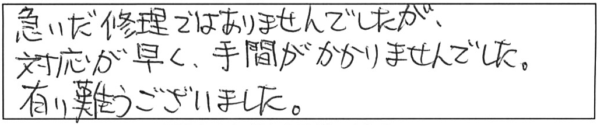 急いだ修理ではありませんでしたが、
対応が早く、手間がかかりませんでした。
有り難うございました。